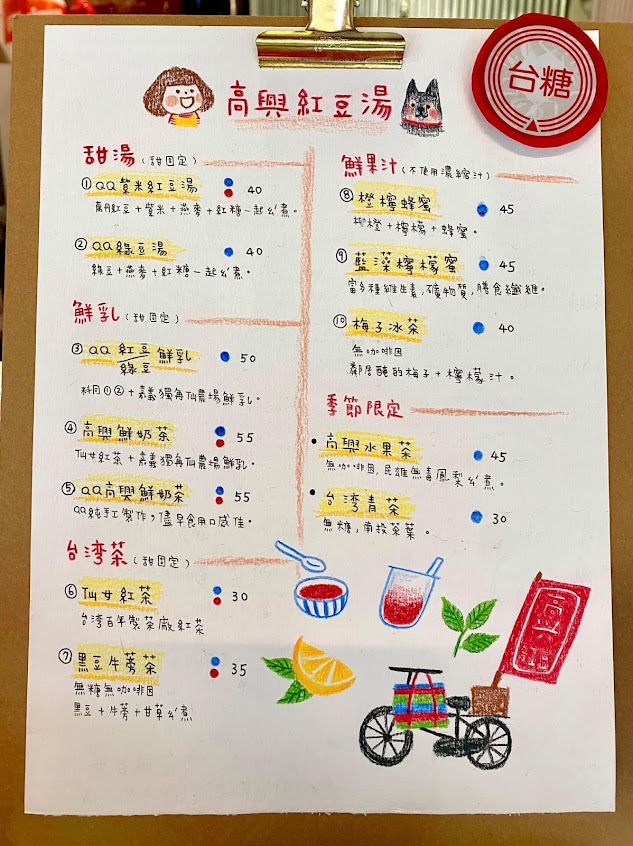 高興紅豆湯
台糖
甜湯(甜固定)
① QQ紫米紅豆湯 40
萬丹紅豆+紫米+燕麥+紅糖一起ㄠˊ煮。
② QQ綠豆湯 40
綠豆+燕麥+紅糖一起ㄠˊ煮。
鮮乳(甜固定)
③ QQ 紅豆/綠豆 鮮乳 50
料同①②+嘉義獨角仙農場鮮乳。
④ 高興鮮奶茶 55
仙女紅茶+嘉義獨角仙農場鮮乳。
⑤ QQ高興鮮奶茶 55
QQ純手工製作,儘早食用口感佳。
台湾茶(甜固定)
⑥ 仙女紅茶 30
台湾百年製茶廠紅茶
⑦ 黑豆牛蒡茶 35
無糖無咖啡因
黑豆+牛蒡+甘草ㄠˊ煮
鮮果汁(不使用濃縮汁)
⑧ 橙檸蜂蜜 45
柳橙+檸檬+蜂蜜。
⑨ 藍藻檸檬蜜 45
富多種維生素,礦物質,膳食纖維。
⑩ 梅子冰茶 40
無咖啡因
鄰居醃的梅子+檸檬汁。
季節限定
• 高興水果茶 45
無咖啡因,民雄無毒鳳梨ㄠˊ煮。
• 台湾青茶 30
無糖,南投茶葉。